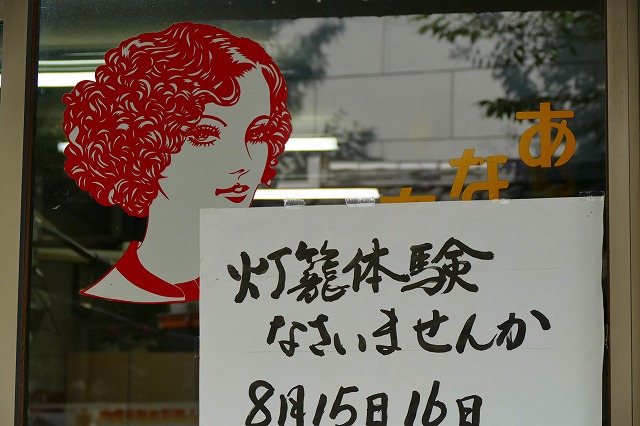 あな
灯籠体験
なさいませんか
8月15日16日